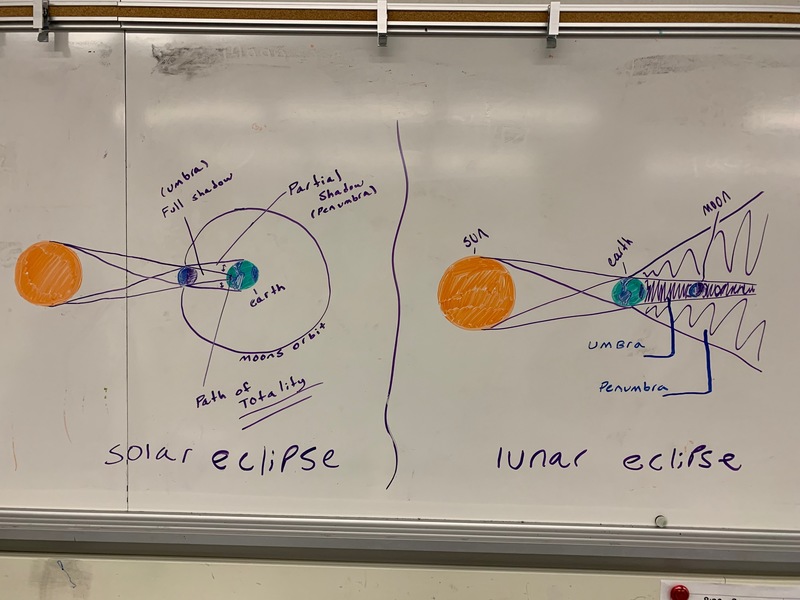 (umbra)
Full shadow
Partial
Shadow
(Penumbra)
earth
moons orbit
Path of
Totality
solar eclipse
sun
earth
moon
umbra
Penumbra
lunar eclipse